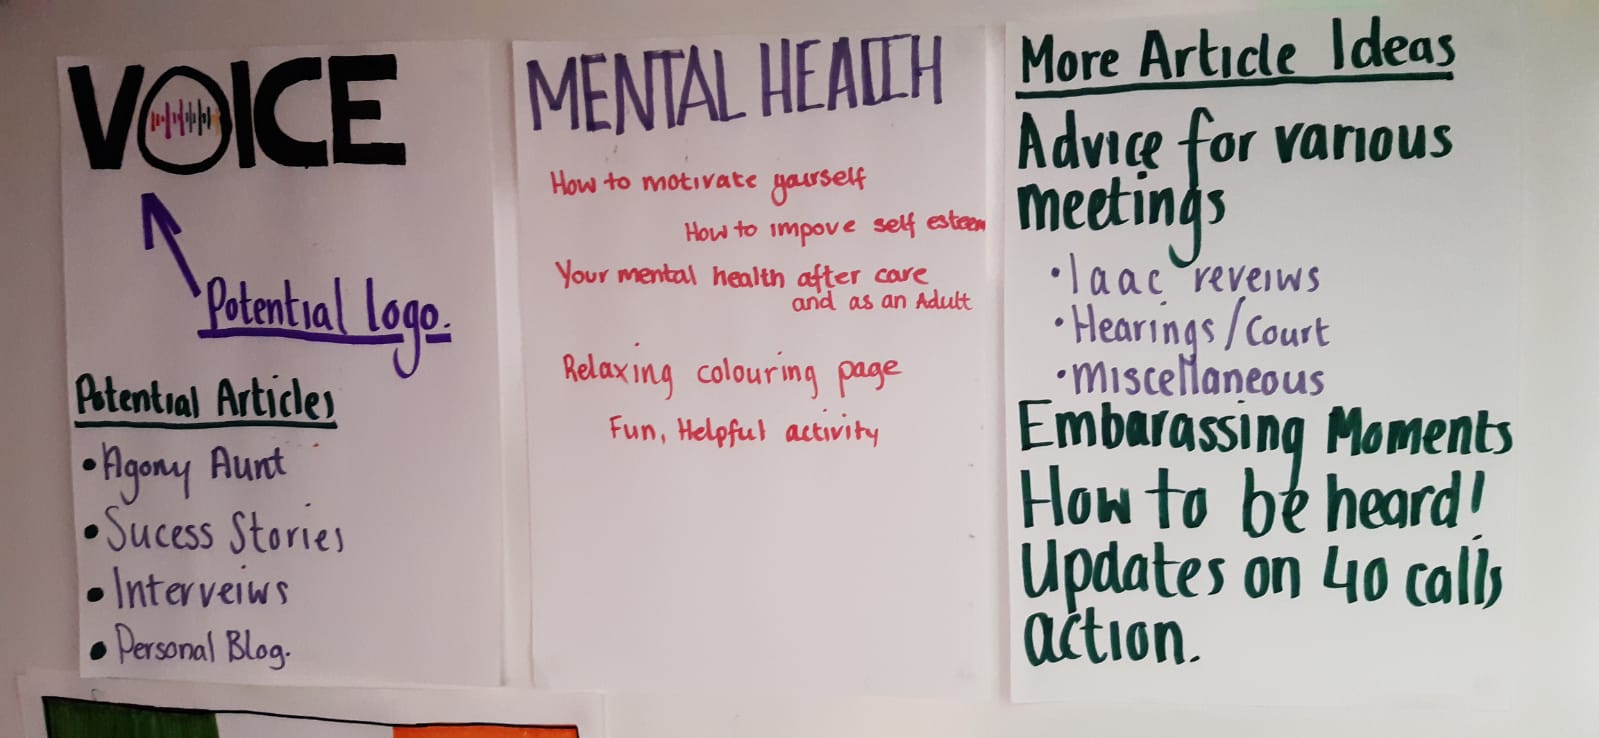 VOICE
Potential logo.
Potential Articles
• Agony Aunt
• Sucess Stories
• Interveiws
• Personal Blog.
MENTAL HEALTH
How to motivate yourself
How to impove self esteem
Your mental health after care
and as an Adult
Relaxing colouring page
Fun, Helpful activity
More Article Ideas
Advice for various
meetings
• Iaac reveiws
• Hearings/Court
• Miscellaneous
Embarassing Moments
How to be heard!
Updates on 40 calls
action.